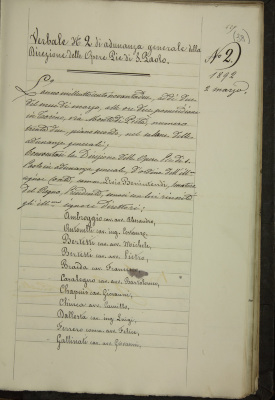 Verbale N. 2 di adunanza generale della
Direzione delle Opere Pie di S. Paolo.
N° 2
1892
2 marzo.
L'anno milleottocentonovantadue, addì due
del mese di marzo, alle ore due pomeridiane
in Torino, via Monte di Pietà, numero
trentadue, piano secondo, nel salone delle
adunanze generali;
Convocatasi la Direzione delle Opere Pie di S.
Paolo in adunanza generale, d'ordine dell'ill.
signor comm.
del Regno, Presidente, sonosi con lui riuniti
gli ill. signori Direttori:
Ambroggio cav. avv.
cav. ing.
Bertetti cav. avv. Michele,
Bertetti cav. avv. Pietro,
Braida cav. Francesco,
cav. avv. Bartolomeo,
Chapuis cav. Giovanni,
Chiesa avv. Camillo,
cav. ing. Luigi,
Ferrero comm. avv. Felice,
Gattinati cav. avv. Giovanni,